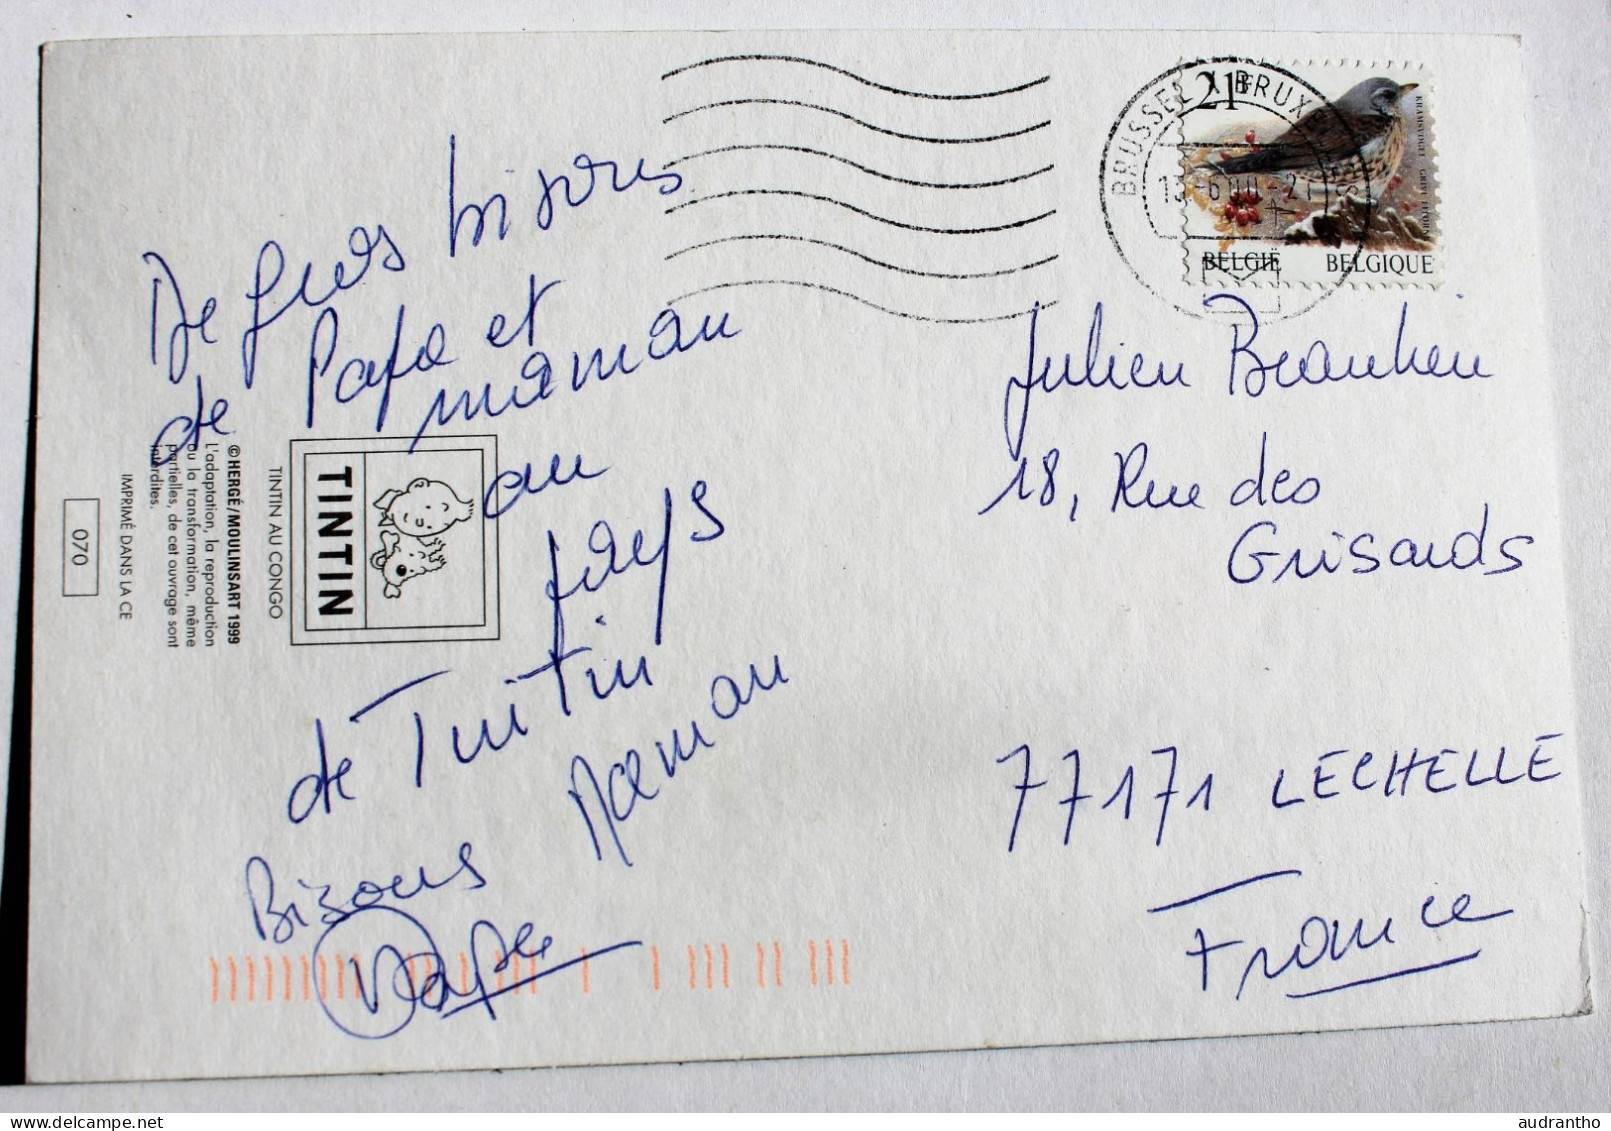 De gros bisous
de Papa et
maman
au
pays
de Tintin
Bisous Maman
Papa
TINTIN
TINTIN AU CONGO
©HERGÉ/MOULINSART 1999
L'adaptation, la reproduction
ou la transformation, même
partielles, de cet ouvrage sont
interdites.
IMPRIMÉ DANS LA CE
070
BRUSSEL X BRUX
13-6
21F
KRAMSVOGEL GRIVE LITORNE
BELGIË BELGIQUE
Julien
18, Rue des
Grisards
77171 LECHELLE
France
audrantho